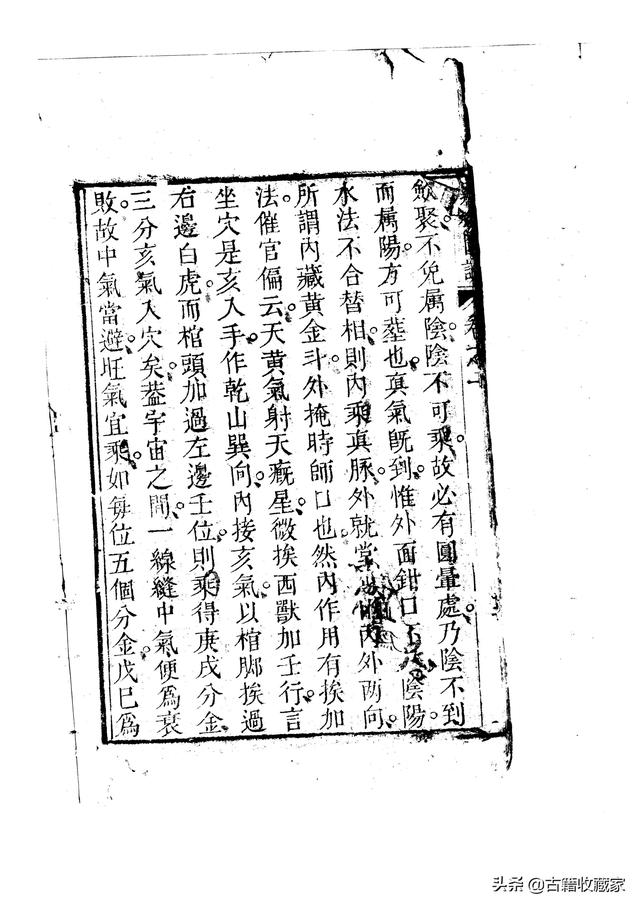 卷之
歛聚。不免属陰。陰不可乘。故必有圓暈處。乃陰不到
而属陽。方可塟也。真氣旣到。惟外面針口陰陽。
水法不合替相。則内乘真脉。外就堂内外両向。
所謂内藏黄金斗。外掩時師口也。然内作用有挨加
法。催官偏云。天黄氣射天廐星。微挨西獸加壬行。言
坐穴是亥入手。作乾山巽向。内接亥氣。以棺脚挨過
右邊白虎。而棺頭加過左邊壬位。則乘得庚戌分金
三分亥氣入穴矣。葢宇宙之間。一線縫中氣便為衰
敗。故中氣當避。旺氣宜乘。如每位五個分金。戊巳為
头条 @古籍收藏家